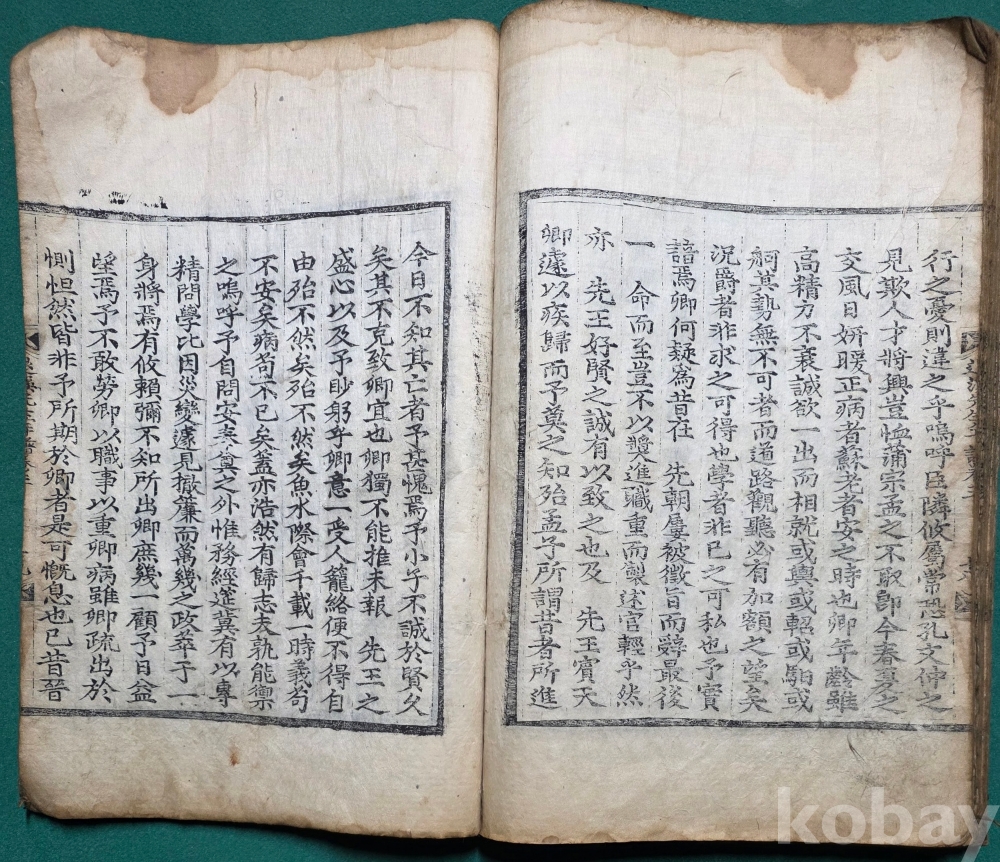 行之憂則違之乎嗚呼臣隣攸屬常恐孔文仲之
見欺人才將興豈恤蒲宗孟之不取卽今春夏之
交風日妍暖正病者蘇老者安之時也卿年齡雖
高精力不衰誠欲一出而相就或輿或軺或馹或
舸其勢無不可者而道路觀聽必有加額之望矣
況爵者非求之可得也學者非己之可私也予實
諳焉卿何疑焉昔在 先朝屢被徵旨而辭最後
一 命而至豈不以獎進職重而製述官輕乎然
亦 先王好賢之誠有以致之也及 先王賓天
卿遽以疾歸而予莫之知殆孟子所謂昔者所進
今日不知其亡者予甚愧焉予小子不誠於賢久
矣其不克致卿宜也卿獨不能推未報 先王之
盛心以及予眇躬乎卿意一受人籠絡便不得自
由殆不然矣殆不然矣魚水際會千載一時義苟
不安矣病苟不已矣蓋亦浩然有歸志夫孰能禦
之嗚呼予自問安奠之外惟務經筵冀有以專
精問學比因災變遽見撤簾而萬幾之政萃于一
身將焉有攸賴彌不知所出卿庶幾一顧予日益
望焉予不敢勞卿以職事以重卿病雖卿疏出於
惻怛然皆非予所期於卿者是可慨息也已昔晉
kobay